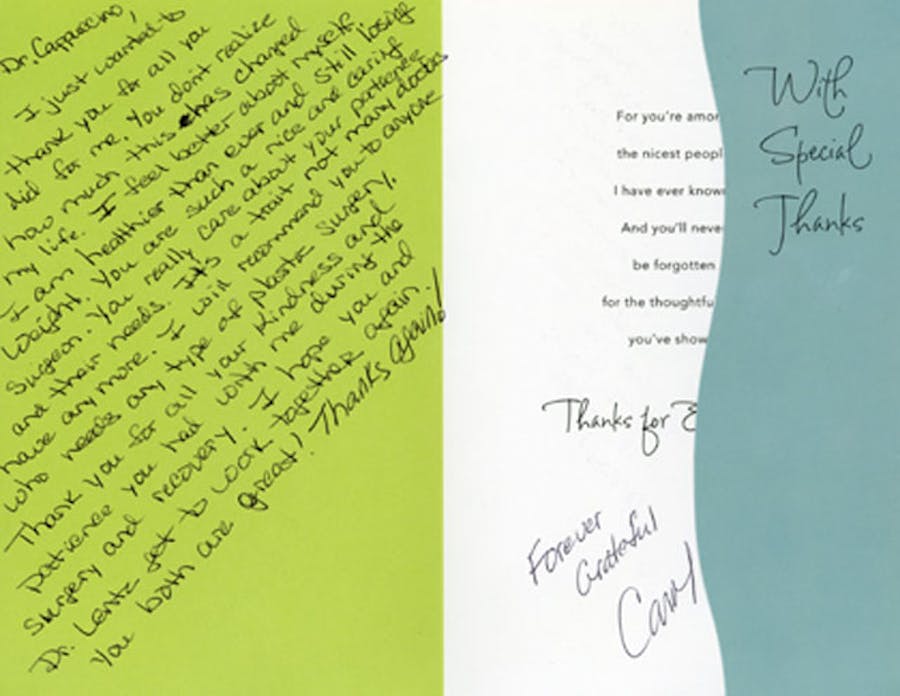 Dr. Cappuccino,
I just wanted to
thank you for all you
did for me. You don't realize
how much this has changed
my life. I feel better about myself
I am healthier than ever and still losing
weight. You are such a nice and caring
surgeon. You really care about your patients
and their needs. It's a trait not many doctors
have any more. I will recommend you to anyone
who needs any type of plastic surgery.
Thank you for all your kindness and
patience you had with me during the
surgery and recovery. I hope you and
Dr. Lentz get to work together again.
You both are great! Thanks again!
For you're amon
the nicest peopl
I have ever know
And you'll neve
be forgotten
for the thoughtfu
you've show
Thanks for E
Forever
Grateful
Carol
With
Special
Thanks